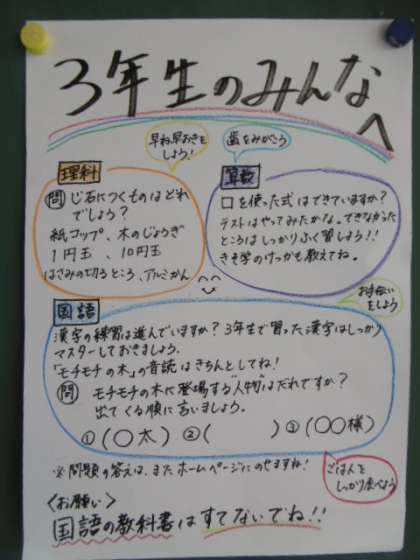 3年生のみんなへ
早ね早おきをしよう!
歯をみがこう
理科
問 じ石につくものはどれでしょう?
紙コップ、木のじょうぎ
1円玉、10円玉
はさみの切るところ、アルミかん
算数
□を使った式はできていますか?
テストはやってみたかな。できなかった
ところはしっかりふく習しよう!!
きそ学のけっかも教えてね。
お手伝いをしよう
国語
漢字の練習は進んでいますか?3年生で習った漢字はしっかり
マスターしておきましょう。
「モチモチの木」の音読はきちんとしてね!
問 モチモチの木に登場する"人物"はだれですか?
出てくる順に言いましょう。
①(〇太) ②( ) ③(〇〇様)
※問題の答えは、またホームページにのせますね!
ごはんをしっかり食べよう
〈お願い〉
国語の教科書はすてないでね!!